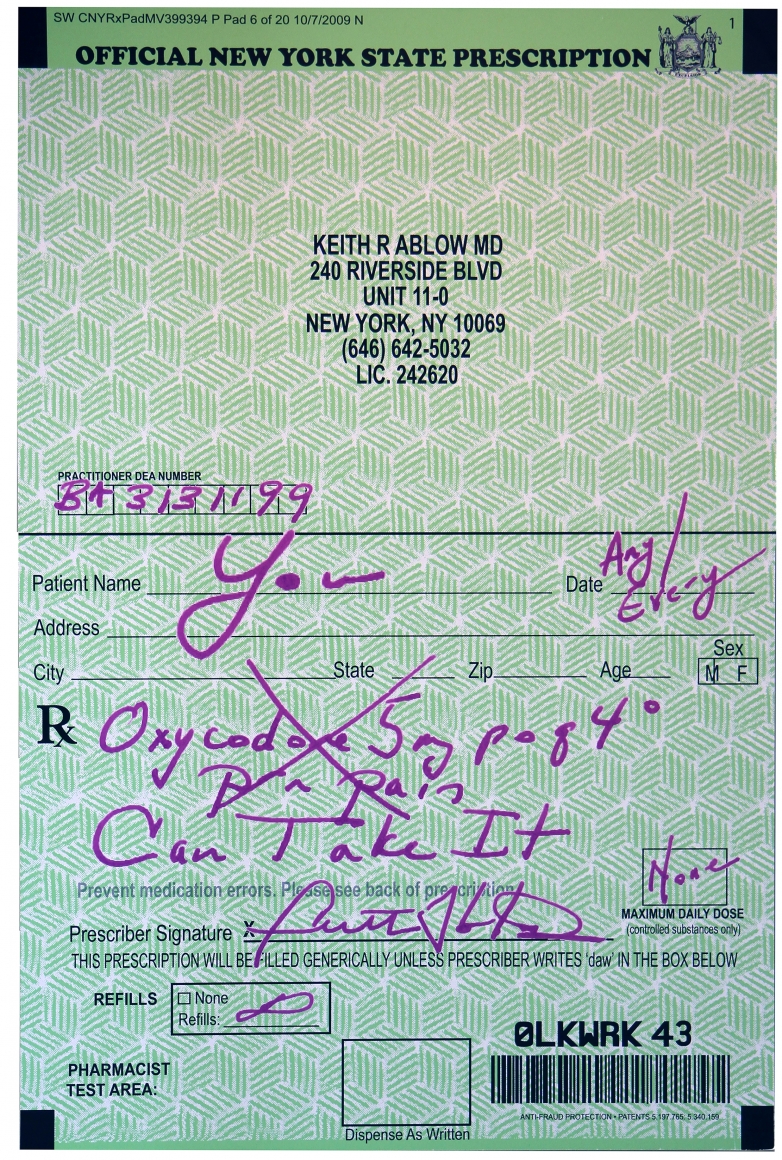 SW CNYRxPadMV399394 P Pad 6 of 20 10/7/2009 N
1
OFFICIAL NEW YORK STATE PRESCRIPTION
KEITH R ABLOW MD
240 RIVERSIDE BLVD
UNIT 11-0
NEW YORK, NY 10069
(646) 642-5032
LIC. 242620
PRACTITIONER DEA NUMBER
BA3131199
Patient Name You Date Any/
Every
Address
Sex
City State Zip Age M F
Rx Oxycodone 5mg po q 4°
prn pain
Can Take It
None
Prevent medication errors. Please see back of prescription
MAXIMUM DAILY DOSE
Prescriber Signature X (controlled substances only)
THIS PRESCRIPTION WILL BE FILLED GENERICALLY UNLESS PRESCRIBER WRITES 'daw' IN THE BOX BELOW
REFILLS None
Refills: ∞
0LKWRK 43
PHARMACIST
TEST AREA:
ANTI-FRAUD PROTECTION • PATENTS 5,197,765; 5,340,159
Dispense As Written